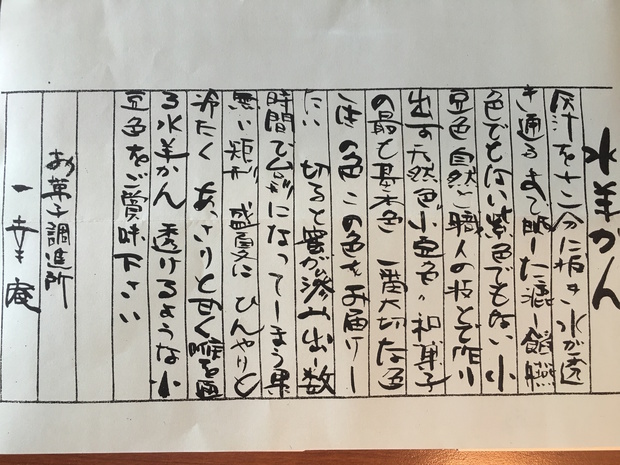 水羊かん
灰汁を十二分に抜き 水が透
き通るまで晒した漉し餡 燕脂
色でもない紫色でもない 小
豆色 自然と職人の技とで作り
出す天然色 小豆色 和菓子
の最も基本色 一番大切な色
この色 この色をお届けし
たい 切ると蜜が滲み出し 数
時間で台形になってしまう果
無い矩形 盛夏に ひんやりと
冷たく あっさりと甘く喉を通
る水羊かん 透けるような小
豆色をご賞味下さい
お菓子調進所
一幸庵